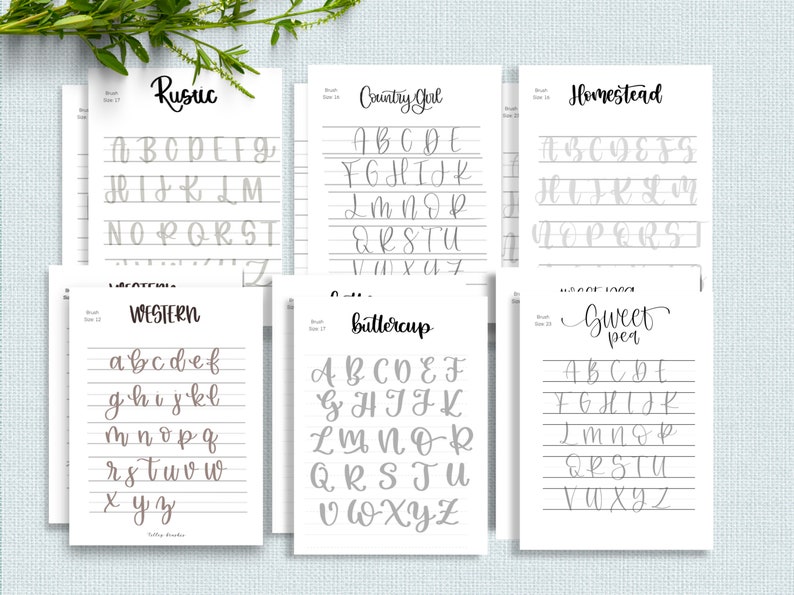 Brush
Size: 17
Rustic
A B C D E F G
H I J K L M
N O P Q R S T
U V W X Y Z
Brush
Size: 16
Country Girl
A B C D E
F G H I J K
L M N O P
Q R S T U
V W X Y Z
Brush
Size: 16
Homestead
A B C D E F G
H I J K L M
N O P Q R S T
Brush
Size: 12
WESTERN
a b c d e f
g h i j k l
m n o p q
r s t u v w
x y z
Brush
Size: 17
buttercup
A B C D E F
G H I J K
L M N O R
Q R S T U
V W X Y Z
sweet pea
Brush
Size: 23
Sweet
pea
A B C D E
F G H I J K
L M N O P
Q R S T U
V W X Y Z